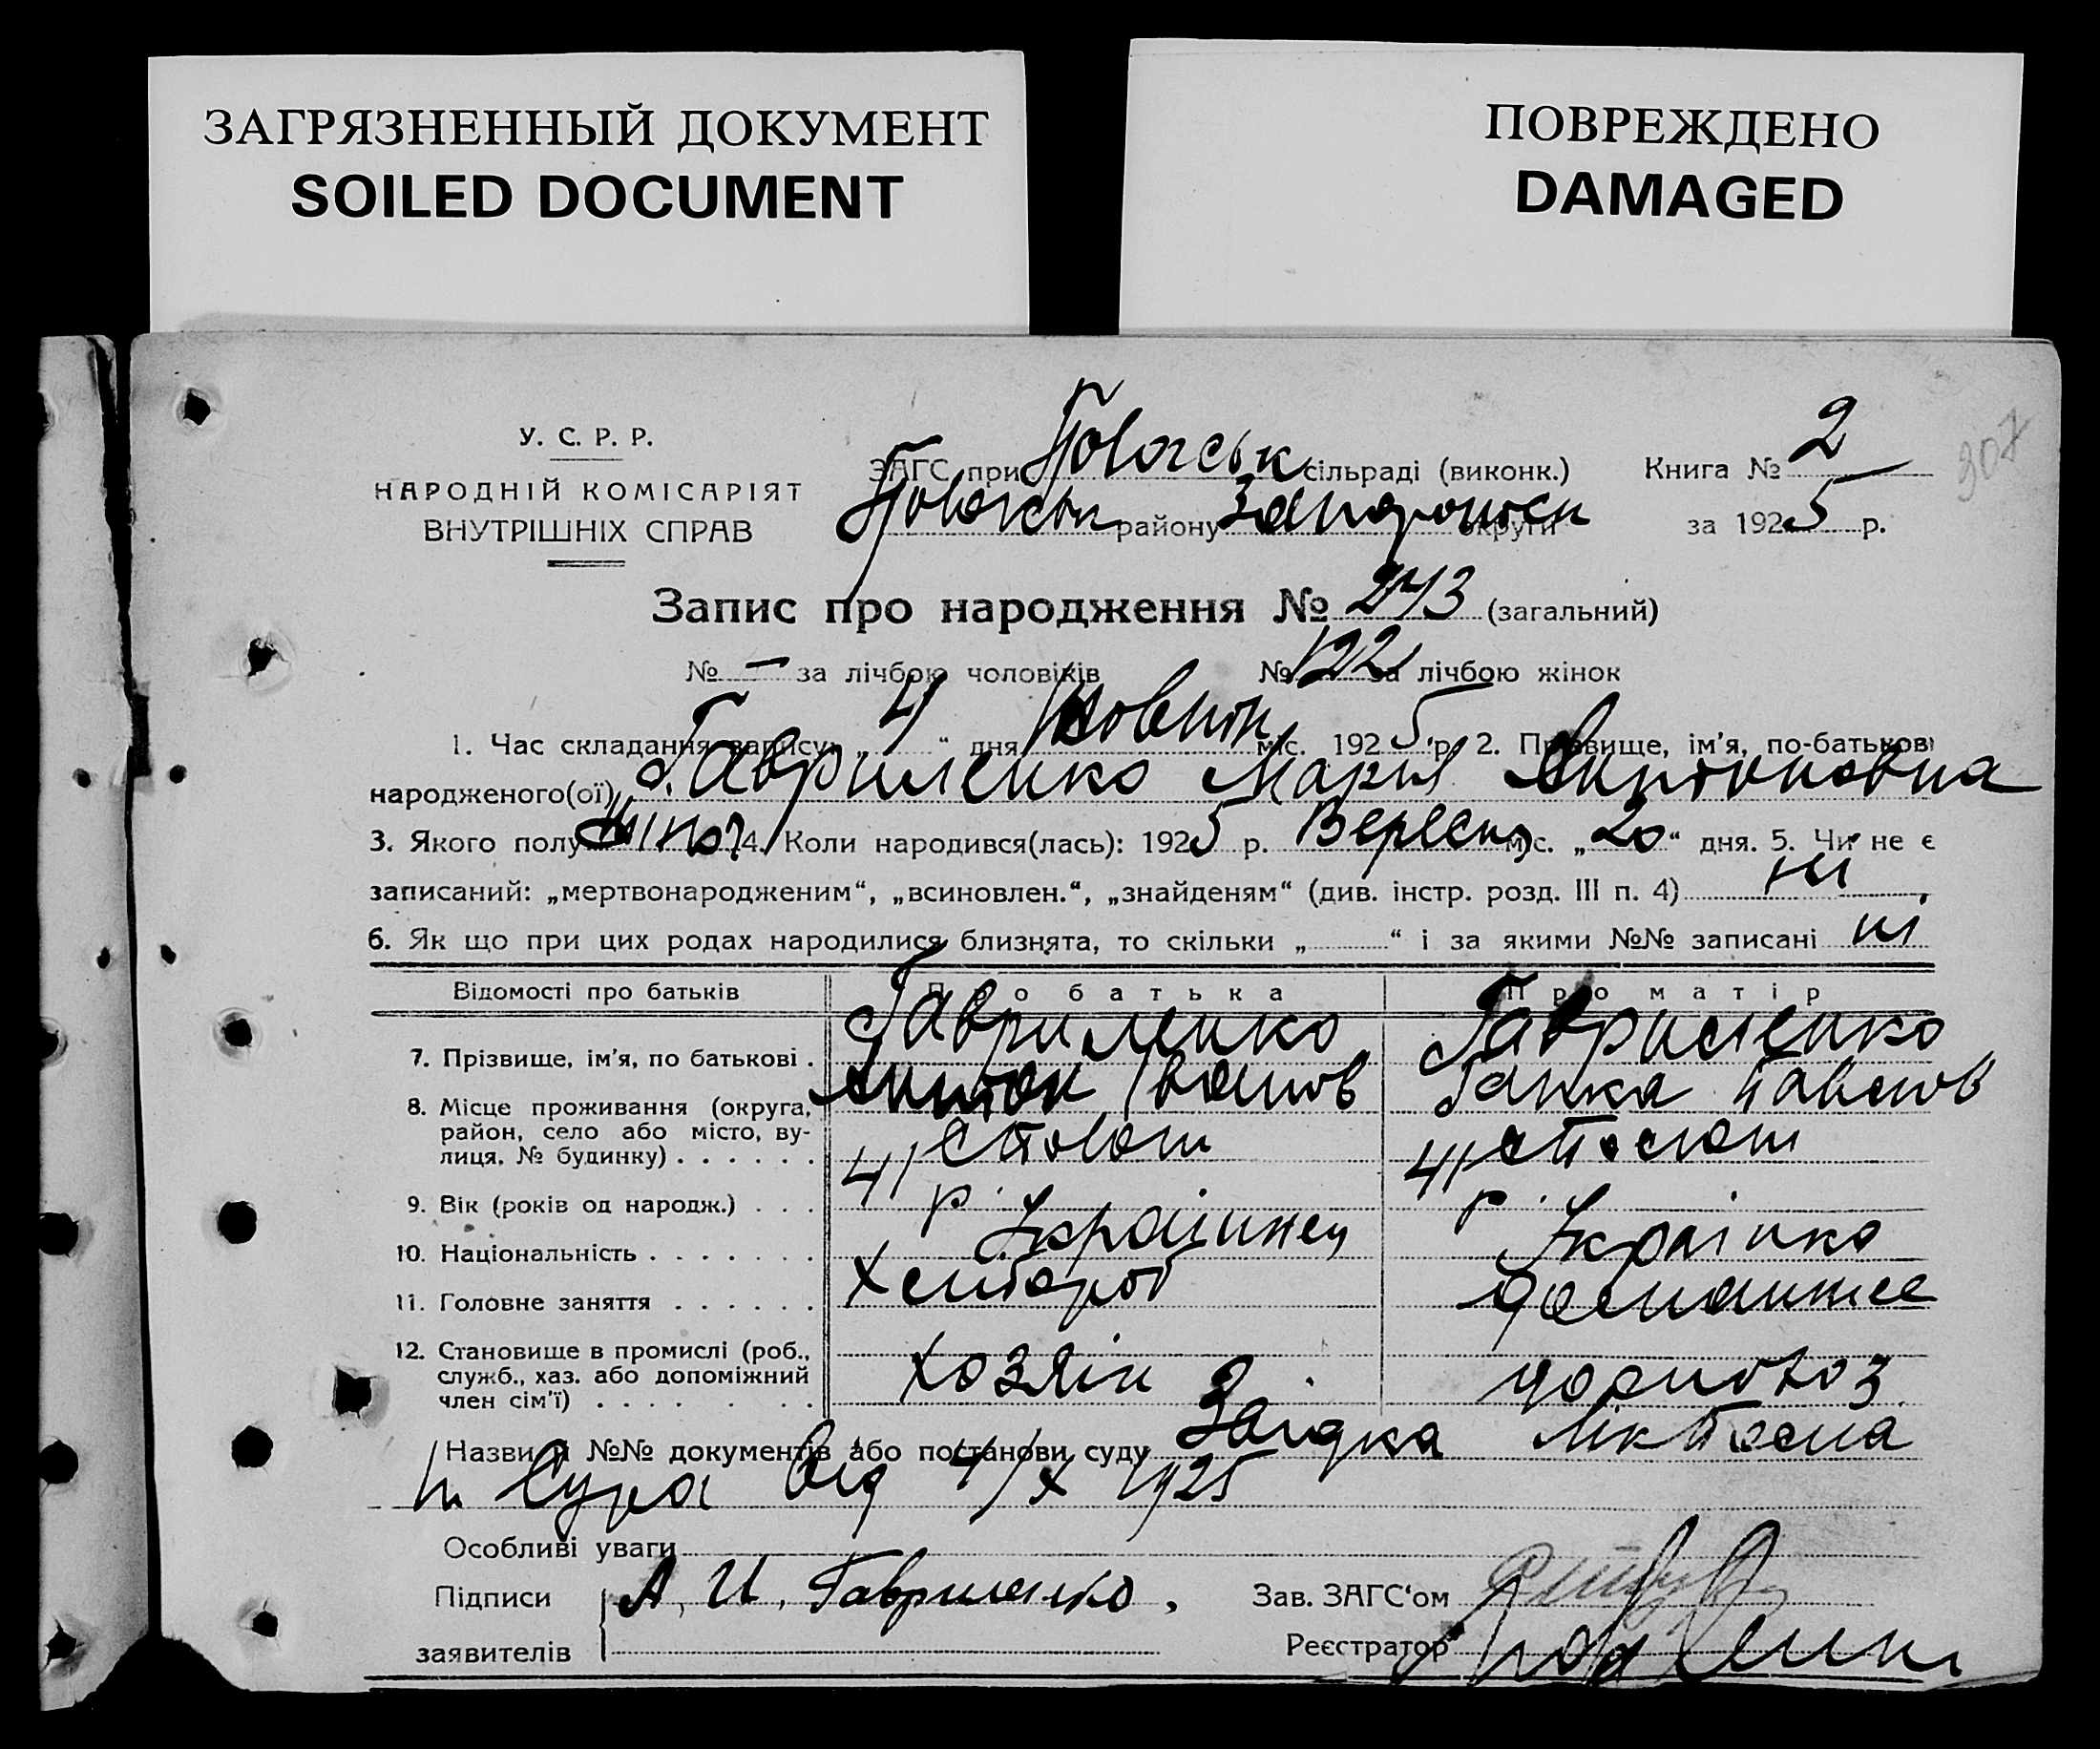 ЗАГРЯЗНЕННЫЙ ДОКУМЕНТ
SOILED DOCUMENT
ПОВРЕЖДЕНО
DAMAGED
У. С. Р. Р.
НАРОДНІЙ КОМІСАРІЯТ
ВНУТРІШНІХ СПРАВ
ЗАГС при сільраді (виконк.) Книга № 2
району округи за 1925 р.
307
Запис про народження № 273 (загальний)
№ — за лічбою чоловіків № 122 за лічбою жінок
1. Час складання запису: „4“ дня Жовтн міс. 1925 р. 2. Прізвище, ім’я, по-батькові
народженого(ої) Гавриленко Мария Антоновна
3. Якого полу 4. Коли народився(лась): 1925 р. Вересня міс. „20“ дня. 5. Чи не є
записаний: „мертвонародженим“, „всиновлен.“, „знайденям“ (див. інстр. розд. III п. 4) ні
6. Як що при цих родах народилися близнята, то скільки „ “ і за якими №№ записані ні
Відомості про батьків Про батька Про матір
7. Прізвище, ім’я, по батькові . Гавриленко Антон Іванов Гавриленко Ганка Павлов
8. Місце проживання (округа, район, село або місто, вулиця, № будинку) . . . . . .
9. Вік (років од народж.) . . . 41 р. 41 р.
10. Національність . . . . . . . Українец Українка
11. Головне заняття . . . . . . Хлібороб домашнее
12. Становище в промислі (роб., служб., хаз. або допоміжний член сім’ї) . . . . хозяїн
Назви й №№ документів або постанови суду
Сура від 4/X 1925
Особливі уваги
Підписи А. И. Гавриленко. Зав. ЗАГС‘ом
заявителів Реєстратор